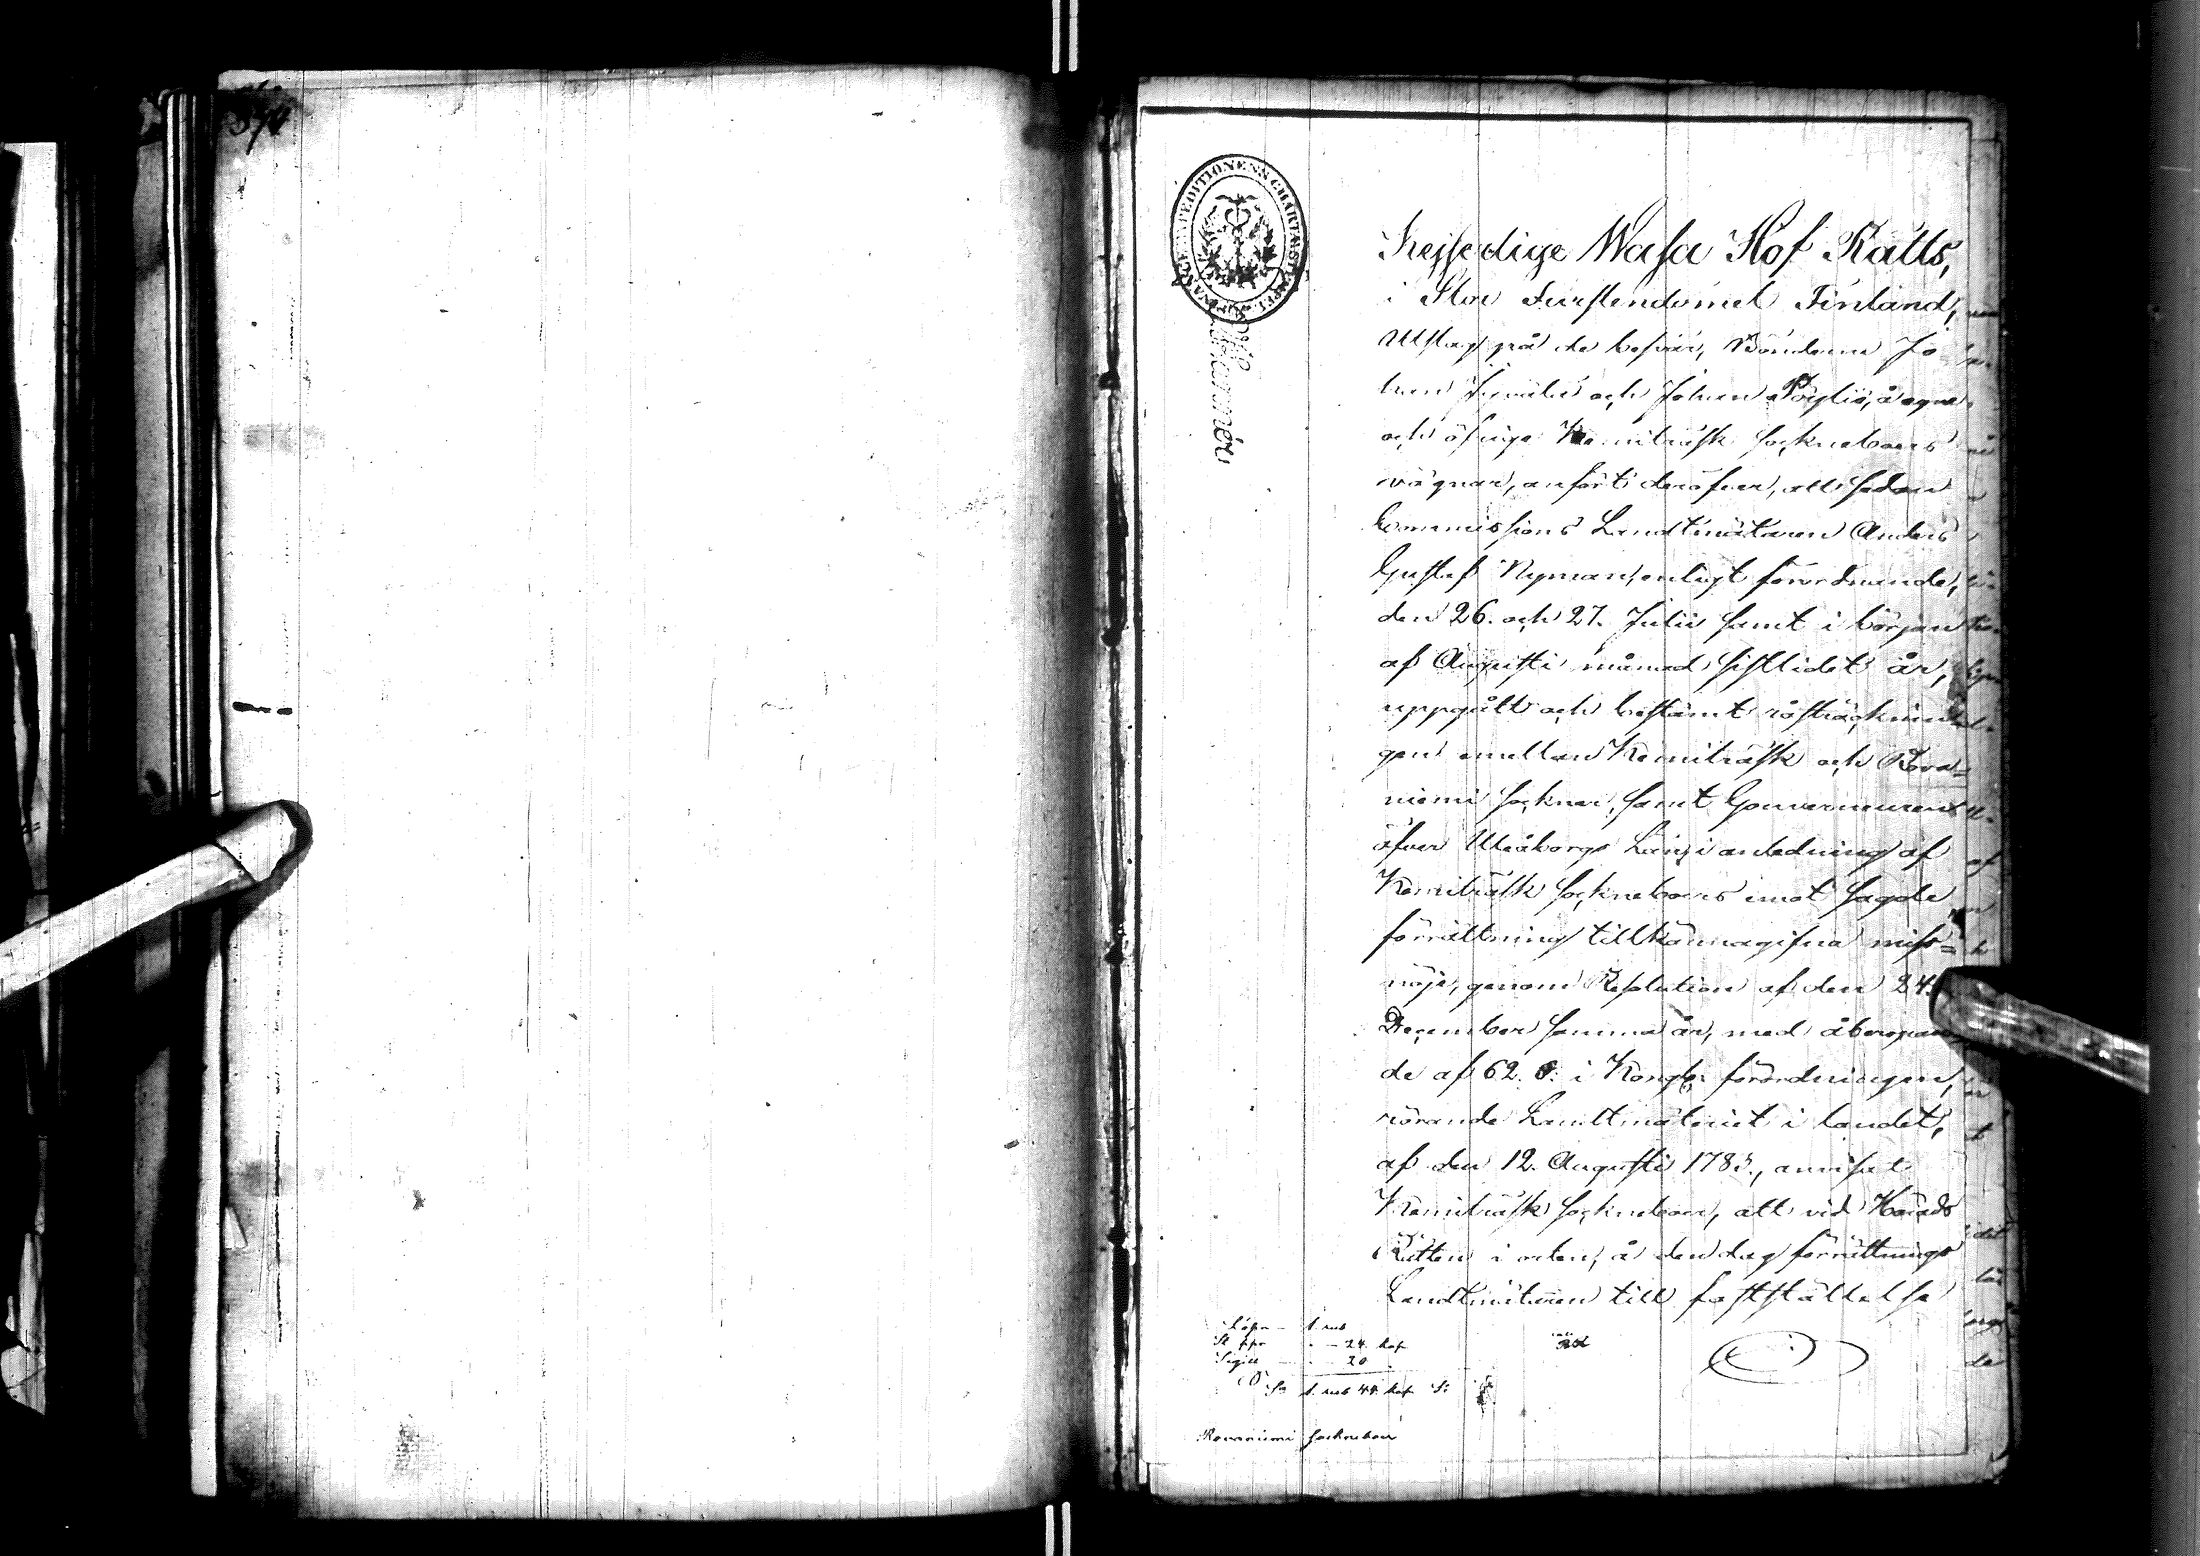 Kejserlige Wasa Hof Rätts,
i Stor Furstendömet Finland,
Utslag på de besvär, Bönderne Jo
han och Johan Pöyliö, å egne
och öfrige Kemiträsk sockneboers
vägnar, anfört deröfver, att sedan
Commissions Landtmätaren Anders
Gustaf Nyman, enligt förordnande,
den 26. och 27. Julii samt i början
af Augusti månad sistlidet år,
uppgått och bestämt råsträcknin
gen emellan Kemiträsk och Rova=
niemi socknar, samt Gouverneuren
öfver Uleåborgs Län, i anledning af
Kemiträsk sockneboers emot sagde
förrättning tillkännagifna miss=
nöje, genom Resolution af den 24.
December samma år, med åberopan
de af 62. §. i Kongl. förordningen,
rörande Landtmäteriet i landet,
af den 12. Augusti 1783., anvisat
Kemiträsk sockneboer, att vid Härads
Rätten i orten, å den dag förrättnings
Landtmätaren till fastställelse
Lösn — 1. rub
St ppr — 24. kop
Sigill — 20
Sa 1. rub 44. kop S:
Rovaniemi sockneboer